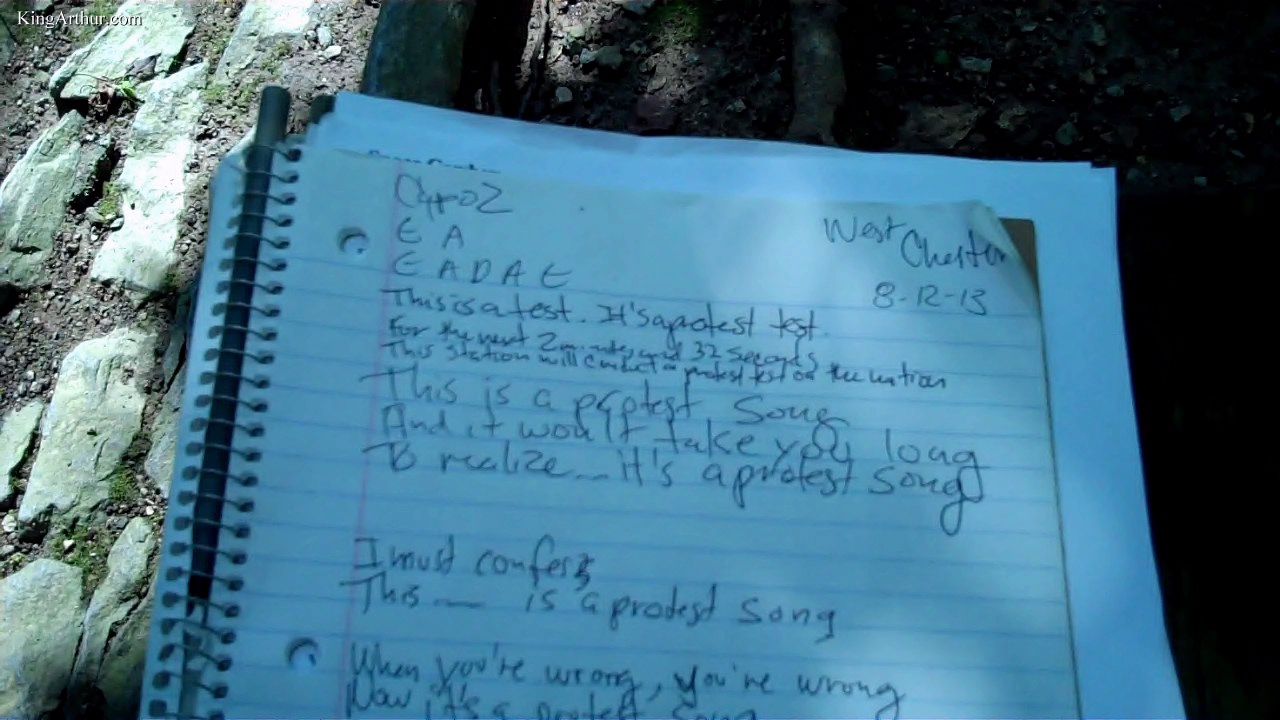 KingArthur.com
Capo 2
E A
West Chester
E A D A E
8-12-13
This is a test. It's a protest test.
For the next 2 minutes and 32 seconds
This station will conduct a protest test on the nation
This is a protest song
And it won't take you long
To realize... it's a protest song
I must confess
This — is a protest song
When you're wrong, you're wrong
Now it's a protest song